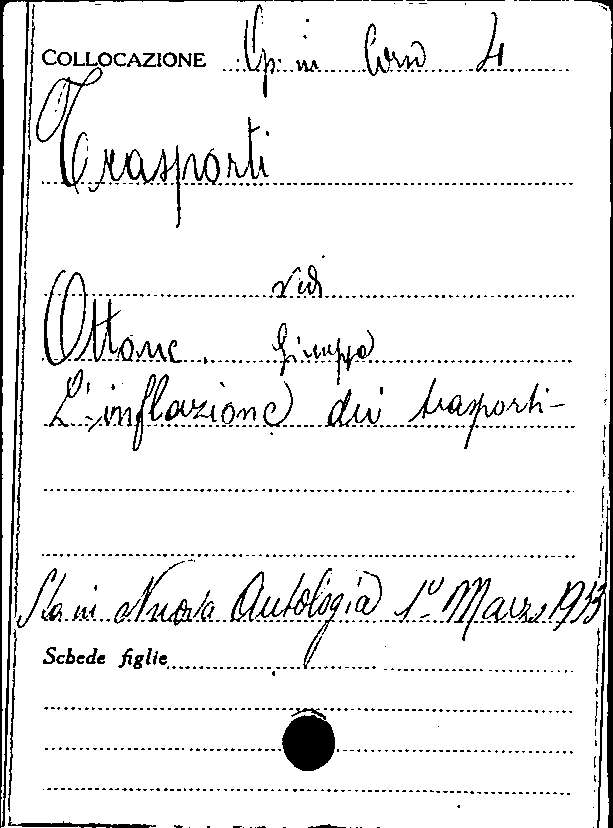 COLLOCAZIONE Op. in Corso 4
Trasporti
vedi
Ottone. Giuseppe
L'inflazione dei trasporti-
Sta in Nuova Antologia 1º Marzo 1933
Schede figlie